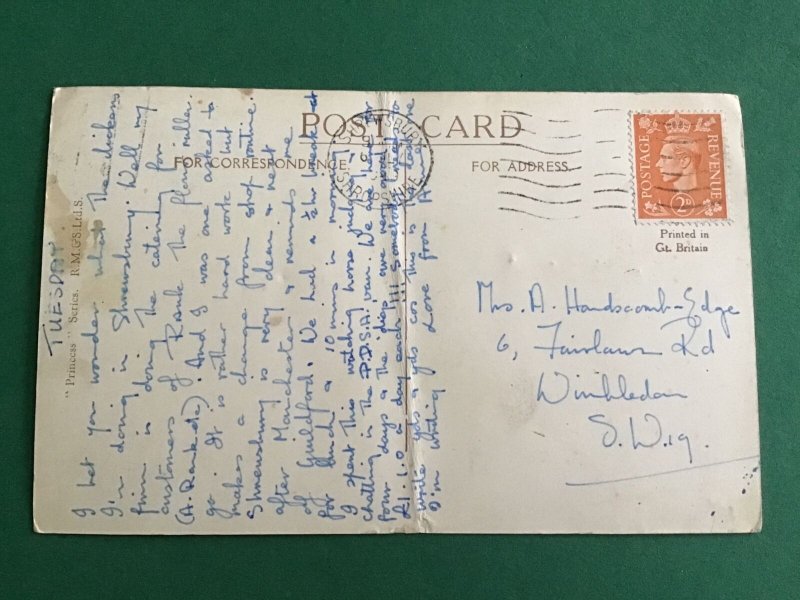 POST CARD
FOR CORRESPONDENCE.
FOR ADDRESS.
POSTAGE
REVENUE
2D
Printed in
Gt. Britain
SHREWSBURY
SHROPSHIRE
"Princess" Series. R.M.&S.Ltd.S.
TUESDAY
I bet you wonder what the dickens
I'm doing in Shrewsbury. Well my
firm is doing the catering for
customers of Rank the flour miller.
(A. Rank etc). And I was one asked to
go. It is rather hard work but
makes a change from shop routine.
Shrewsbury is very clean & neat
after Manchester & reminds me
of Guildford. We had a ½hr break at
for lunch & 10 mins in morning.
I spent this watching horse judging &
chatting in the P.D.S.A. van. We are here for
four days & the
£1.1.0 a day each!!!
write yds & yds cos this is
I'm writing Love from
Mrs. A. Handscomb-Edge
6, Fairlawn Rd
Wimbledon
S.W.19.